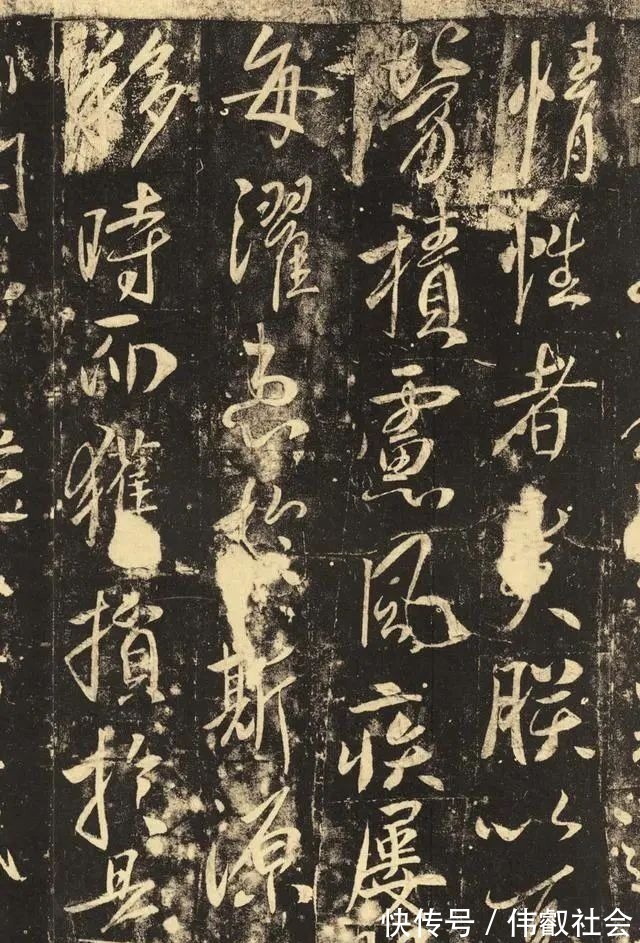 情性者矣朕以
勞積慮風疾屢
每濯患於斯源
移時而獲損於是
快传号 / 伟叡社会